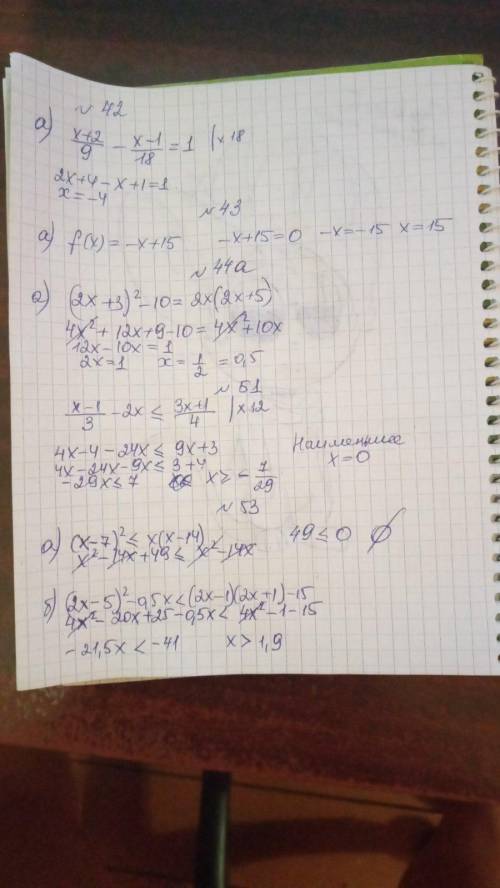 № 42
а) (x+2)/9 − (x−1)/18 = 1 | x 18
2x+4 − x+1 = 1
x = −4
№ 43
а) f(x) = −x+15 −x+15=0 −x=−15 x=15
№ 44а
а) (2x+3)²−10 = 2x(2x+5)
4x²+12x+9−10 = 4x²+10x
12x−10x = 1
2x=1 x = 1/2 = 0,5
№ 51
(x−1)/3 − 2x ≤ (3x+1)/4 | x 12
4x−4−24x ≤ 9x+3
4x−24x−9x ≤ 3+4
−29x ≤ 7 x ≥ −7/29
Наименьшее
x=0
№ 53
а) (x−7)² ≤ x(x−14) 49 ≤ 0 ∅
x²−14x+49 ≤ x²−14x
б) (2x−5)²−0,5x < (2x−1)(2x+1)−15
4x²−20x+25−0,5x < 4x²−1−15
−21,5x < −41 x > 1,9